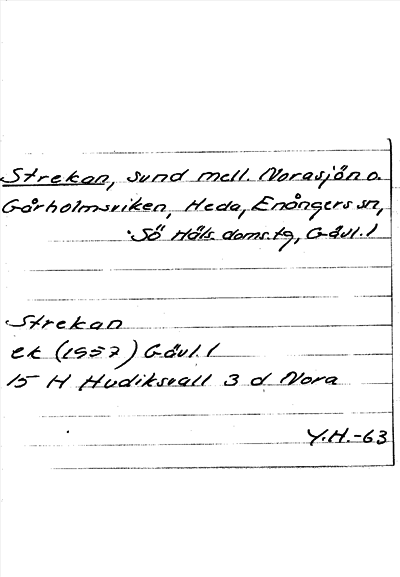 Strekan, sund mell. Norasjön o.
Gårholmsviken, Heda, Enångers sn,
Sö Häls. doms.tg, Gävl. l
Strekan
ek (1957) Gävl. l
15 H Hudiksvall 3 d Nora
Y.H.-63